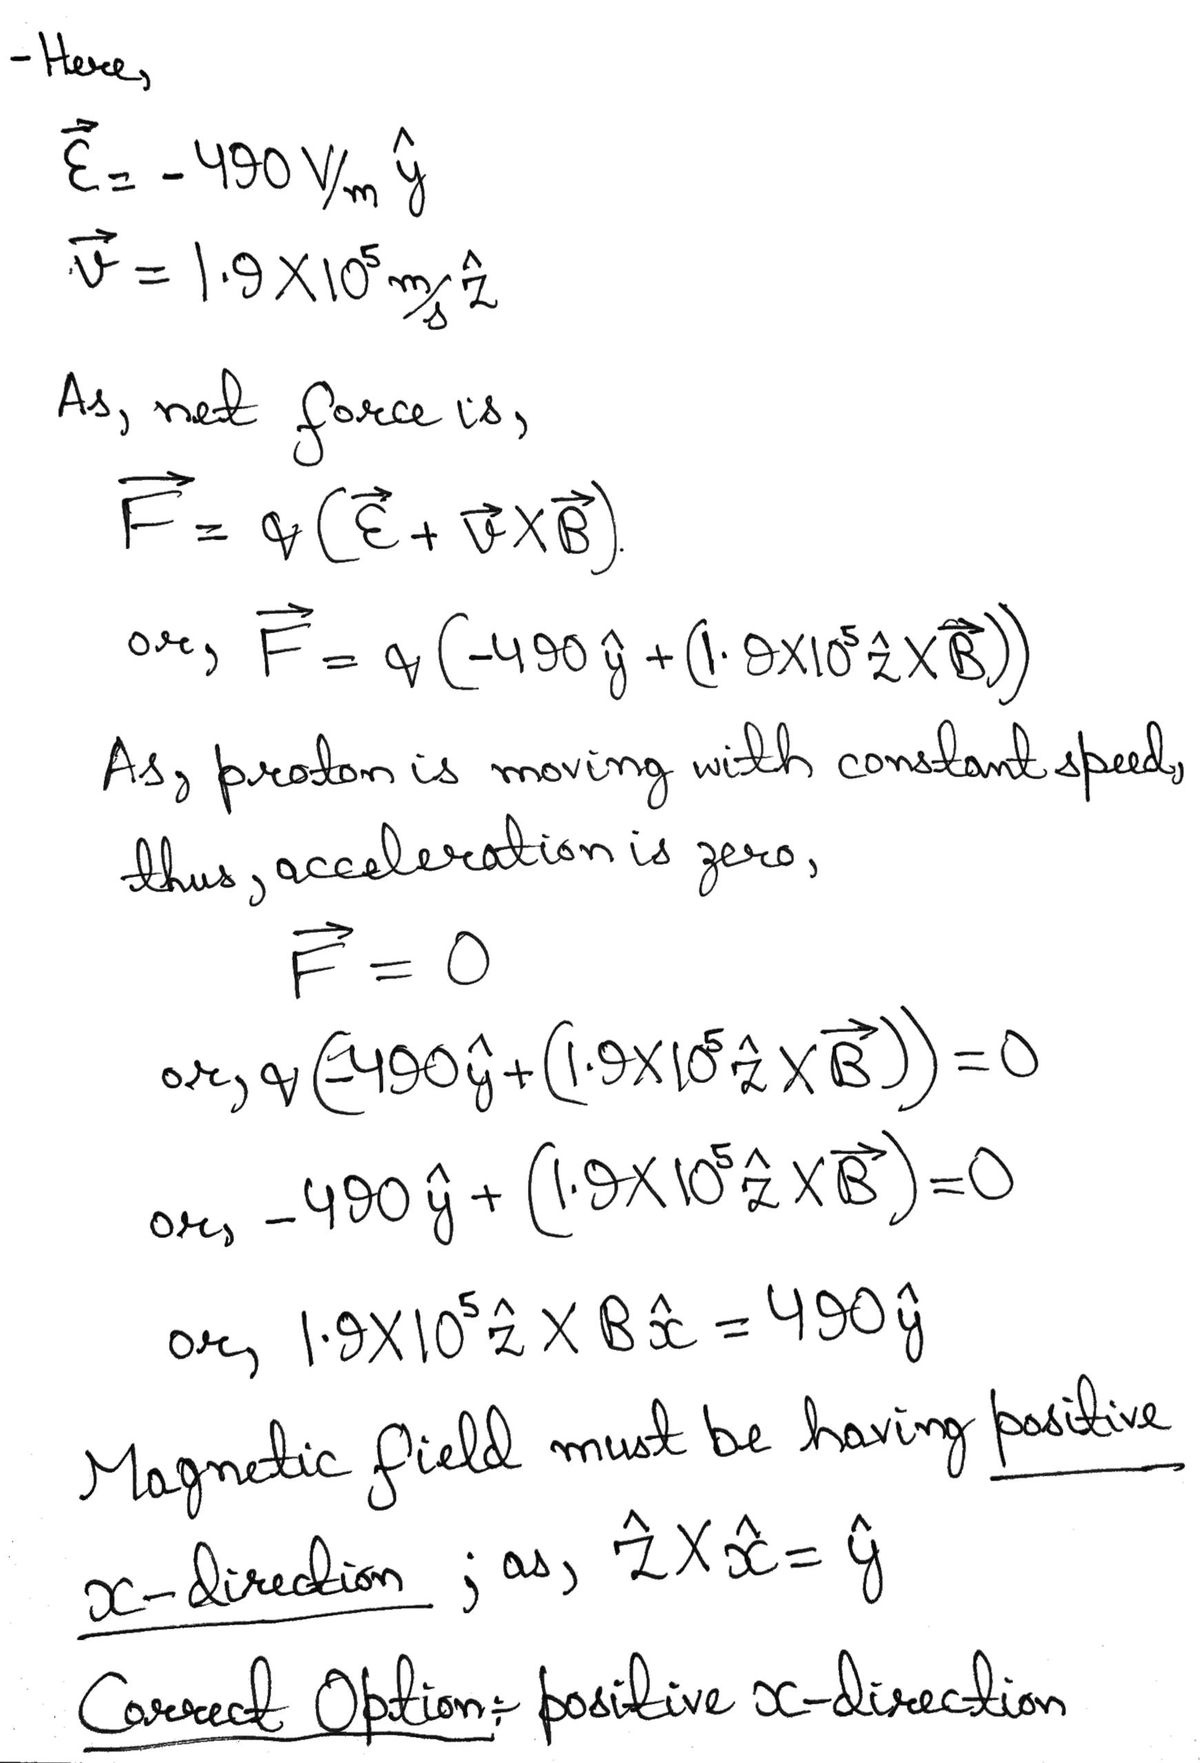 - Here,
ε⃗ = - 490 V/m ŷ
v⃗ = 1.9 X 10⁵ m/s ẑ
As, net force is,
F⃗ = q (ε⃗ + v⃗ X B⃗).
or, F⃗ = q (-490 ŷ + (1.9X10⁵ ẑ X B⃗))
As, proton is moving with constant speed,
thus, acceleration is zero,
F⃗ = 0
or, q (-490 ŷ + (1.9X10⁵ ẑ X B⃗)) = 0
or, -490 ŷ + (1.9X10⁵ ẑ X B⃗) = 0
or, 1.9X10⁵ ẑ X B x̂ = 490 ŷ
Magnetic field must be having positive
x-direction ; as, ẑ X x̂ = ŷ
Correct Option:- positive x-direction